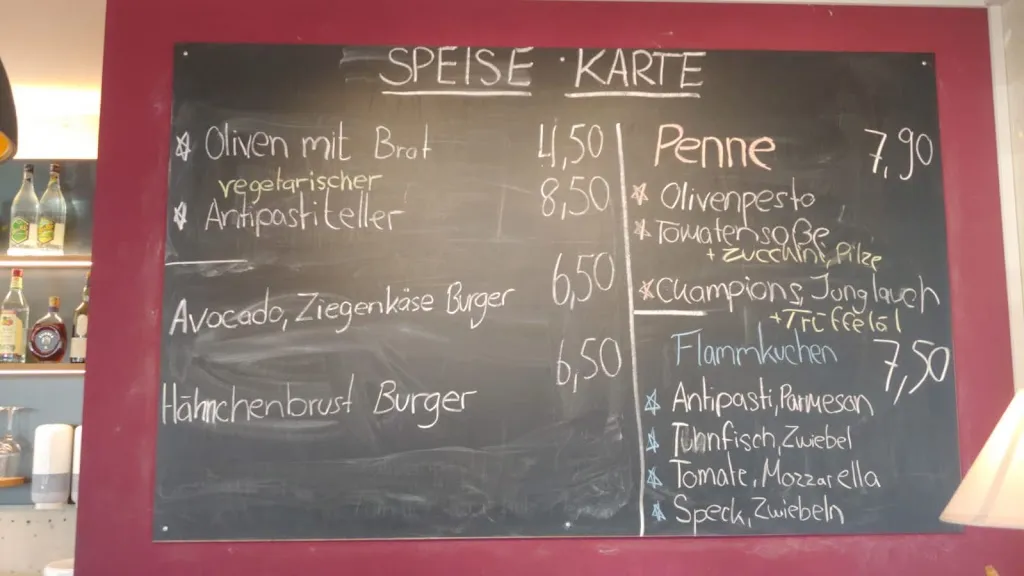 SPEISE · KARTE
Oliven mit Brot 4,50
vegetarischer 8,50
Antipastiteller
6,50
Avocado, Ziegenkäse Burger
6,50
Hähnchenbrust Burger
Penne 7,90
Olivenpesto
Tomatensoße
+ Zucchini, Pilze
Champions, Junglauch
+ Trüffelöl
Flammkuchen 7,50
Antipasti, Parmesan
Tuhnfisch, Zwiebel
Tomate, Mozzarella
Speck, Zwiebeln